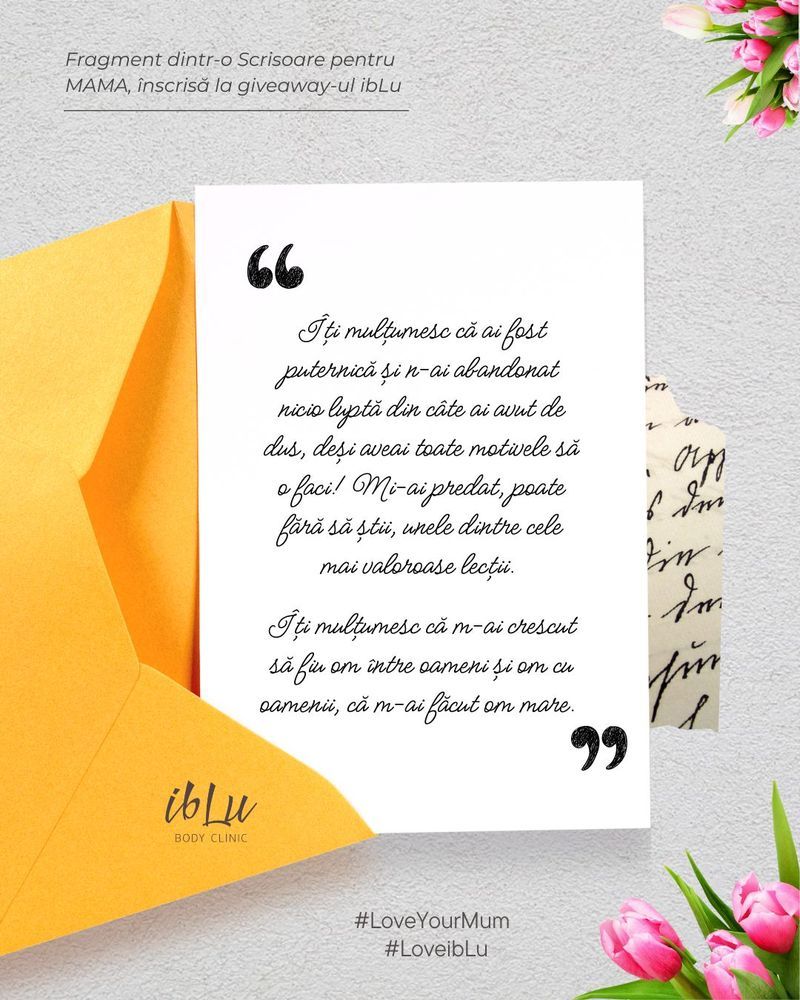 Fragment dintr-o Scrisoare pentru
MAMA, înscrisă la giveaway-ul ibLu
Îți mulțumesc că ai fost
puternică și n-ai abandonat
nicio luptă din câte ai avut de
dus, deși aveai toate motivele să
o faci! Mi-ai predat, poate
fără să știi, unele dintre cele
mai valoroase lecții.
Îți mulțumesc că m-ai crescut
să fiu om între oameni și om cu
oamenii, că m-ai făcut om mare.
ibLu
BODY CLINIC
#LoveYourMum
#LoveibLu